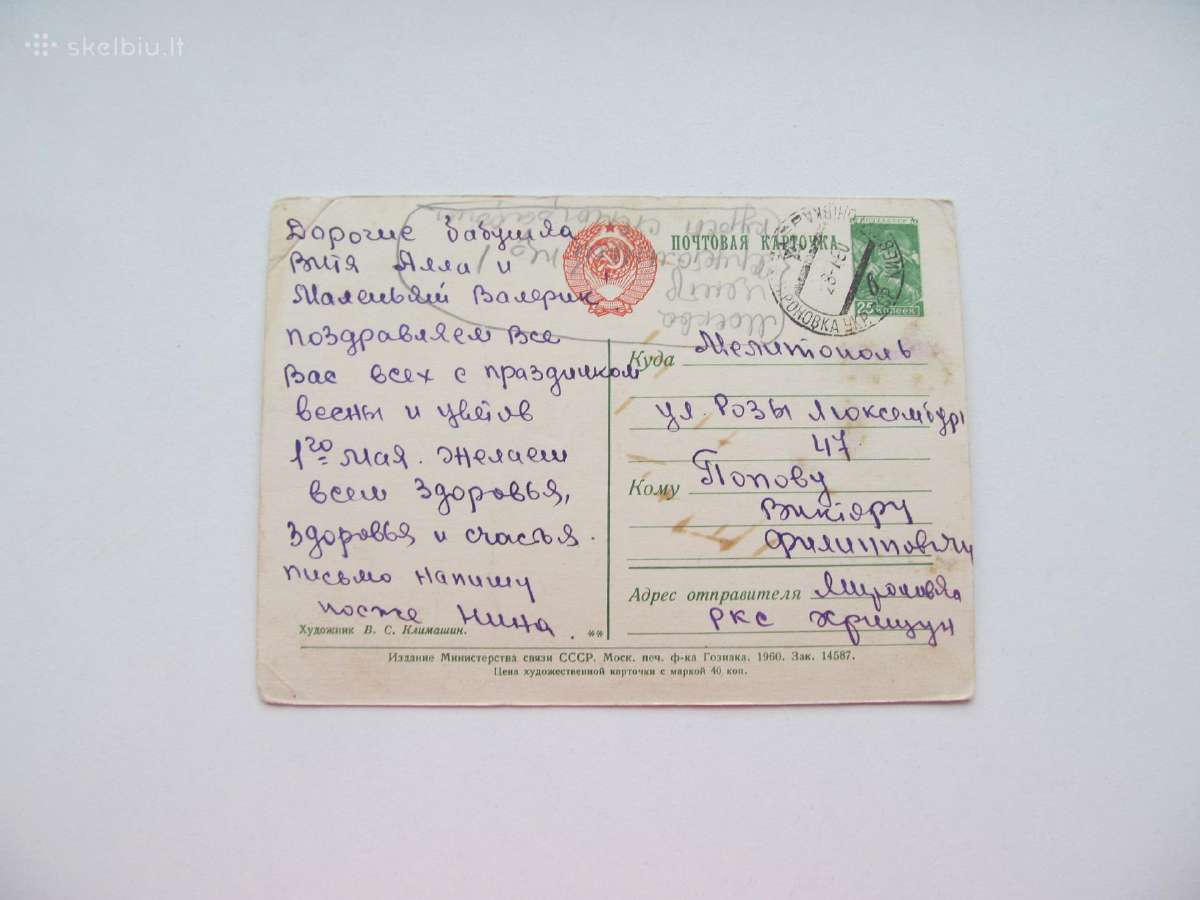 skelbiu.lt
Дорогие бабушка
Витя Алла и
Маленький Валерик
поздравляем Все
Вас всех с праздником
весны и цветов
1го Мая. Желаем
всем здоровья,
здоровья и счастья.
письмо напишу
позже Нина
Художник В. С. Климашин.
**
ПОЧТОВАЯ КАРТОЧКА
25 копеек
Куда Мелитополь
ул. Розы Люксембург
47
Кому Попову
Виктору
Филипповичу
Адрес отправителя
РКС Хрищун
Москва
центр
курсы
Издание Министерства связи СССР. Моск. печ. ф-ка Гознака. 1960. Зак. 14587.
Цена художественной карточки с маркой 40 коп.